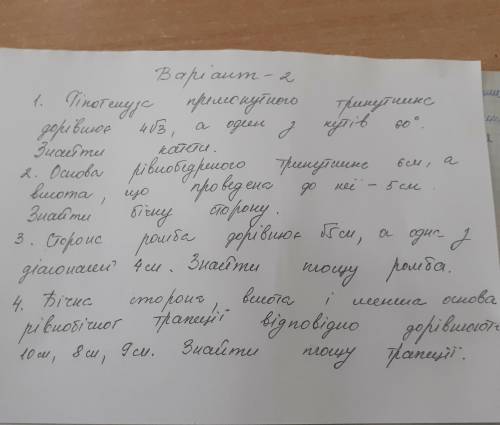 Варіант - 2
1. Гіпотенуза прямокутного трикутника
дорівнює 4√3, а один з кутів 60°.
Знайти катети.
2. Основа рівнобедреного трикутника 6см, а
висота, що проведена до неї - 5 см.
Знайти бічну сторону.
3. Сторона ромба дорівнює √5 см, а одна з
діагоналей 4 см. Знайти площу ромба.
4. Бічна сторона, висота і менша основа
рівнобічної трапеції відповідно дорівнюють
10см, 8см, 9см. Знайти площу трапеції.